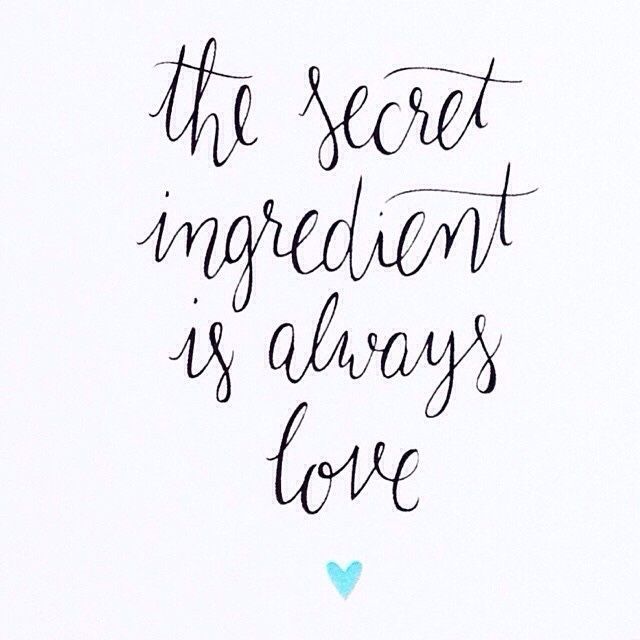 the secret
ingredient
is always
love